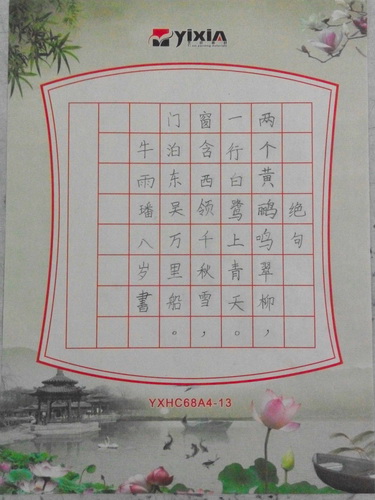 yixin
绝句
两个黄鹂鸣翠柳，
一行白鹭上青天。
窗含西领千秋雪，
门泊东吴万里船。
牛雨璠八岁書
YXHC68A4-13